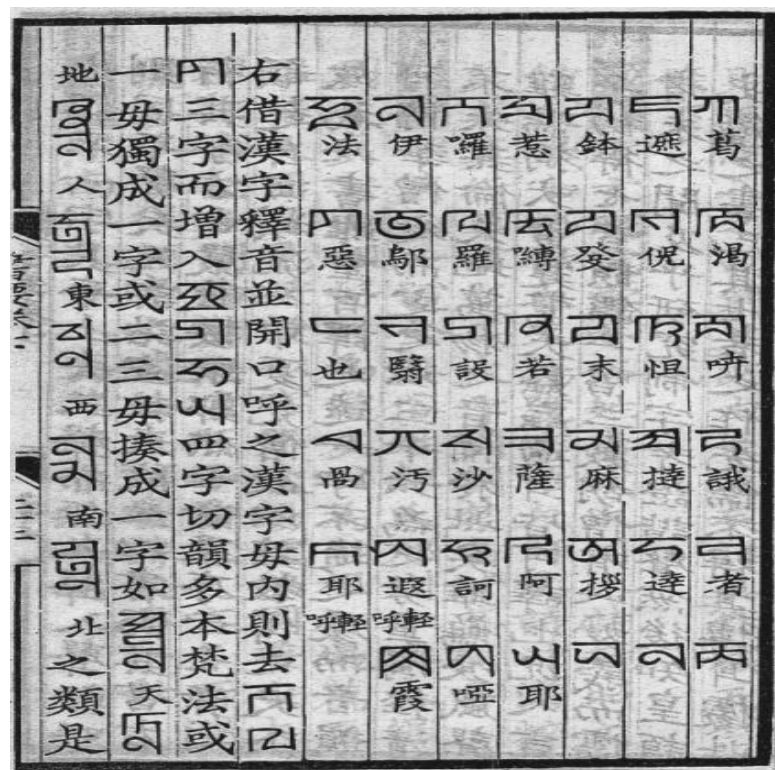 ꡀ葛 ꡁ渴 ꡂ ꡃ誐 ꡄ者 ꡅ
ꡆ遮 ꡇ倪 ꡈ怛 ꡉ撻 ꡊ達 ꡋ
ꡌ鉢 ꡍ發 ꡎ末 ꡏ麻 ꡐ拶 ꡑ
ꡒ惹 ꡓ嚩 ꡔ若 ꡕ薩 ꡖ阿 ꡗ耶
ꡘ囉 ꡙ羅 ꡚ設 ꡛ沙 ꡜ訶 ꡝ啞
ꡞ伊 ꡟ鄔 ꡠ翳 ꡡ污 ꡢ遐輕呼 ꡣ霞
ꡤ法 ꡥ惡 ꡦ也 ꡧ咼 ꡨ耶輕呼
右借漢字釋音並開口呼之漢字毋內則去
三字而增入四字切韻多本梵法或
一毋獨成一字或二三毋揍成一字如天
地人東西南北之類是